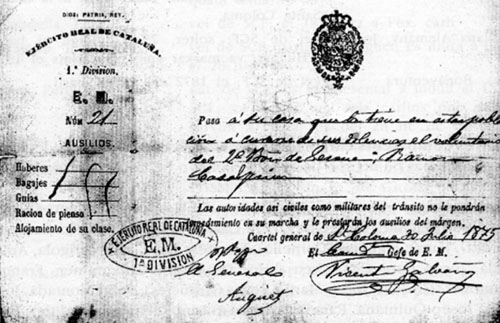 DIOS, PATRIA, REY.
EJÉRCITO REAL DE CATALUÑA.
1.ª Division.
E. M.
Núm 21
AUSILIOS.
Haberes
Bagajes
Guías
Racion de pienso
Alojamiento de su clase.
Pasa á su casa que tiene en esta pobla
ción á curarse de sus dolencias el voluntario
del 2º Bon de Gerona, Ramon
Las autoridades asi civiles como militares del tránsito no le pondrán
impedimento en su marcha y le prestarán los ausilios del márgen.
Cuartel general de Sta Coloma 30 Julio 1875
El Comdte Gefe de E. M.
Vicente
EJÉRCITO REAL DE CATALUÑA
E.M.
1ª DIVISION
El General
Auguet